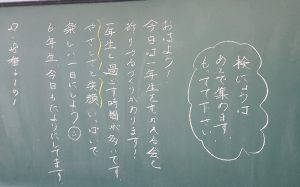 おはよう！
今日は一年生をむかえる会と
折りづるづくりがあります！
一年生と過ごす時間が多いです。
やさしさと笑顔いっぱいで
楽しい一日にしよう
6年生 今日もたよりにしてます
検にょうは
あとで集めます！
もってて下さい